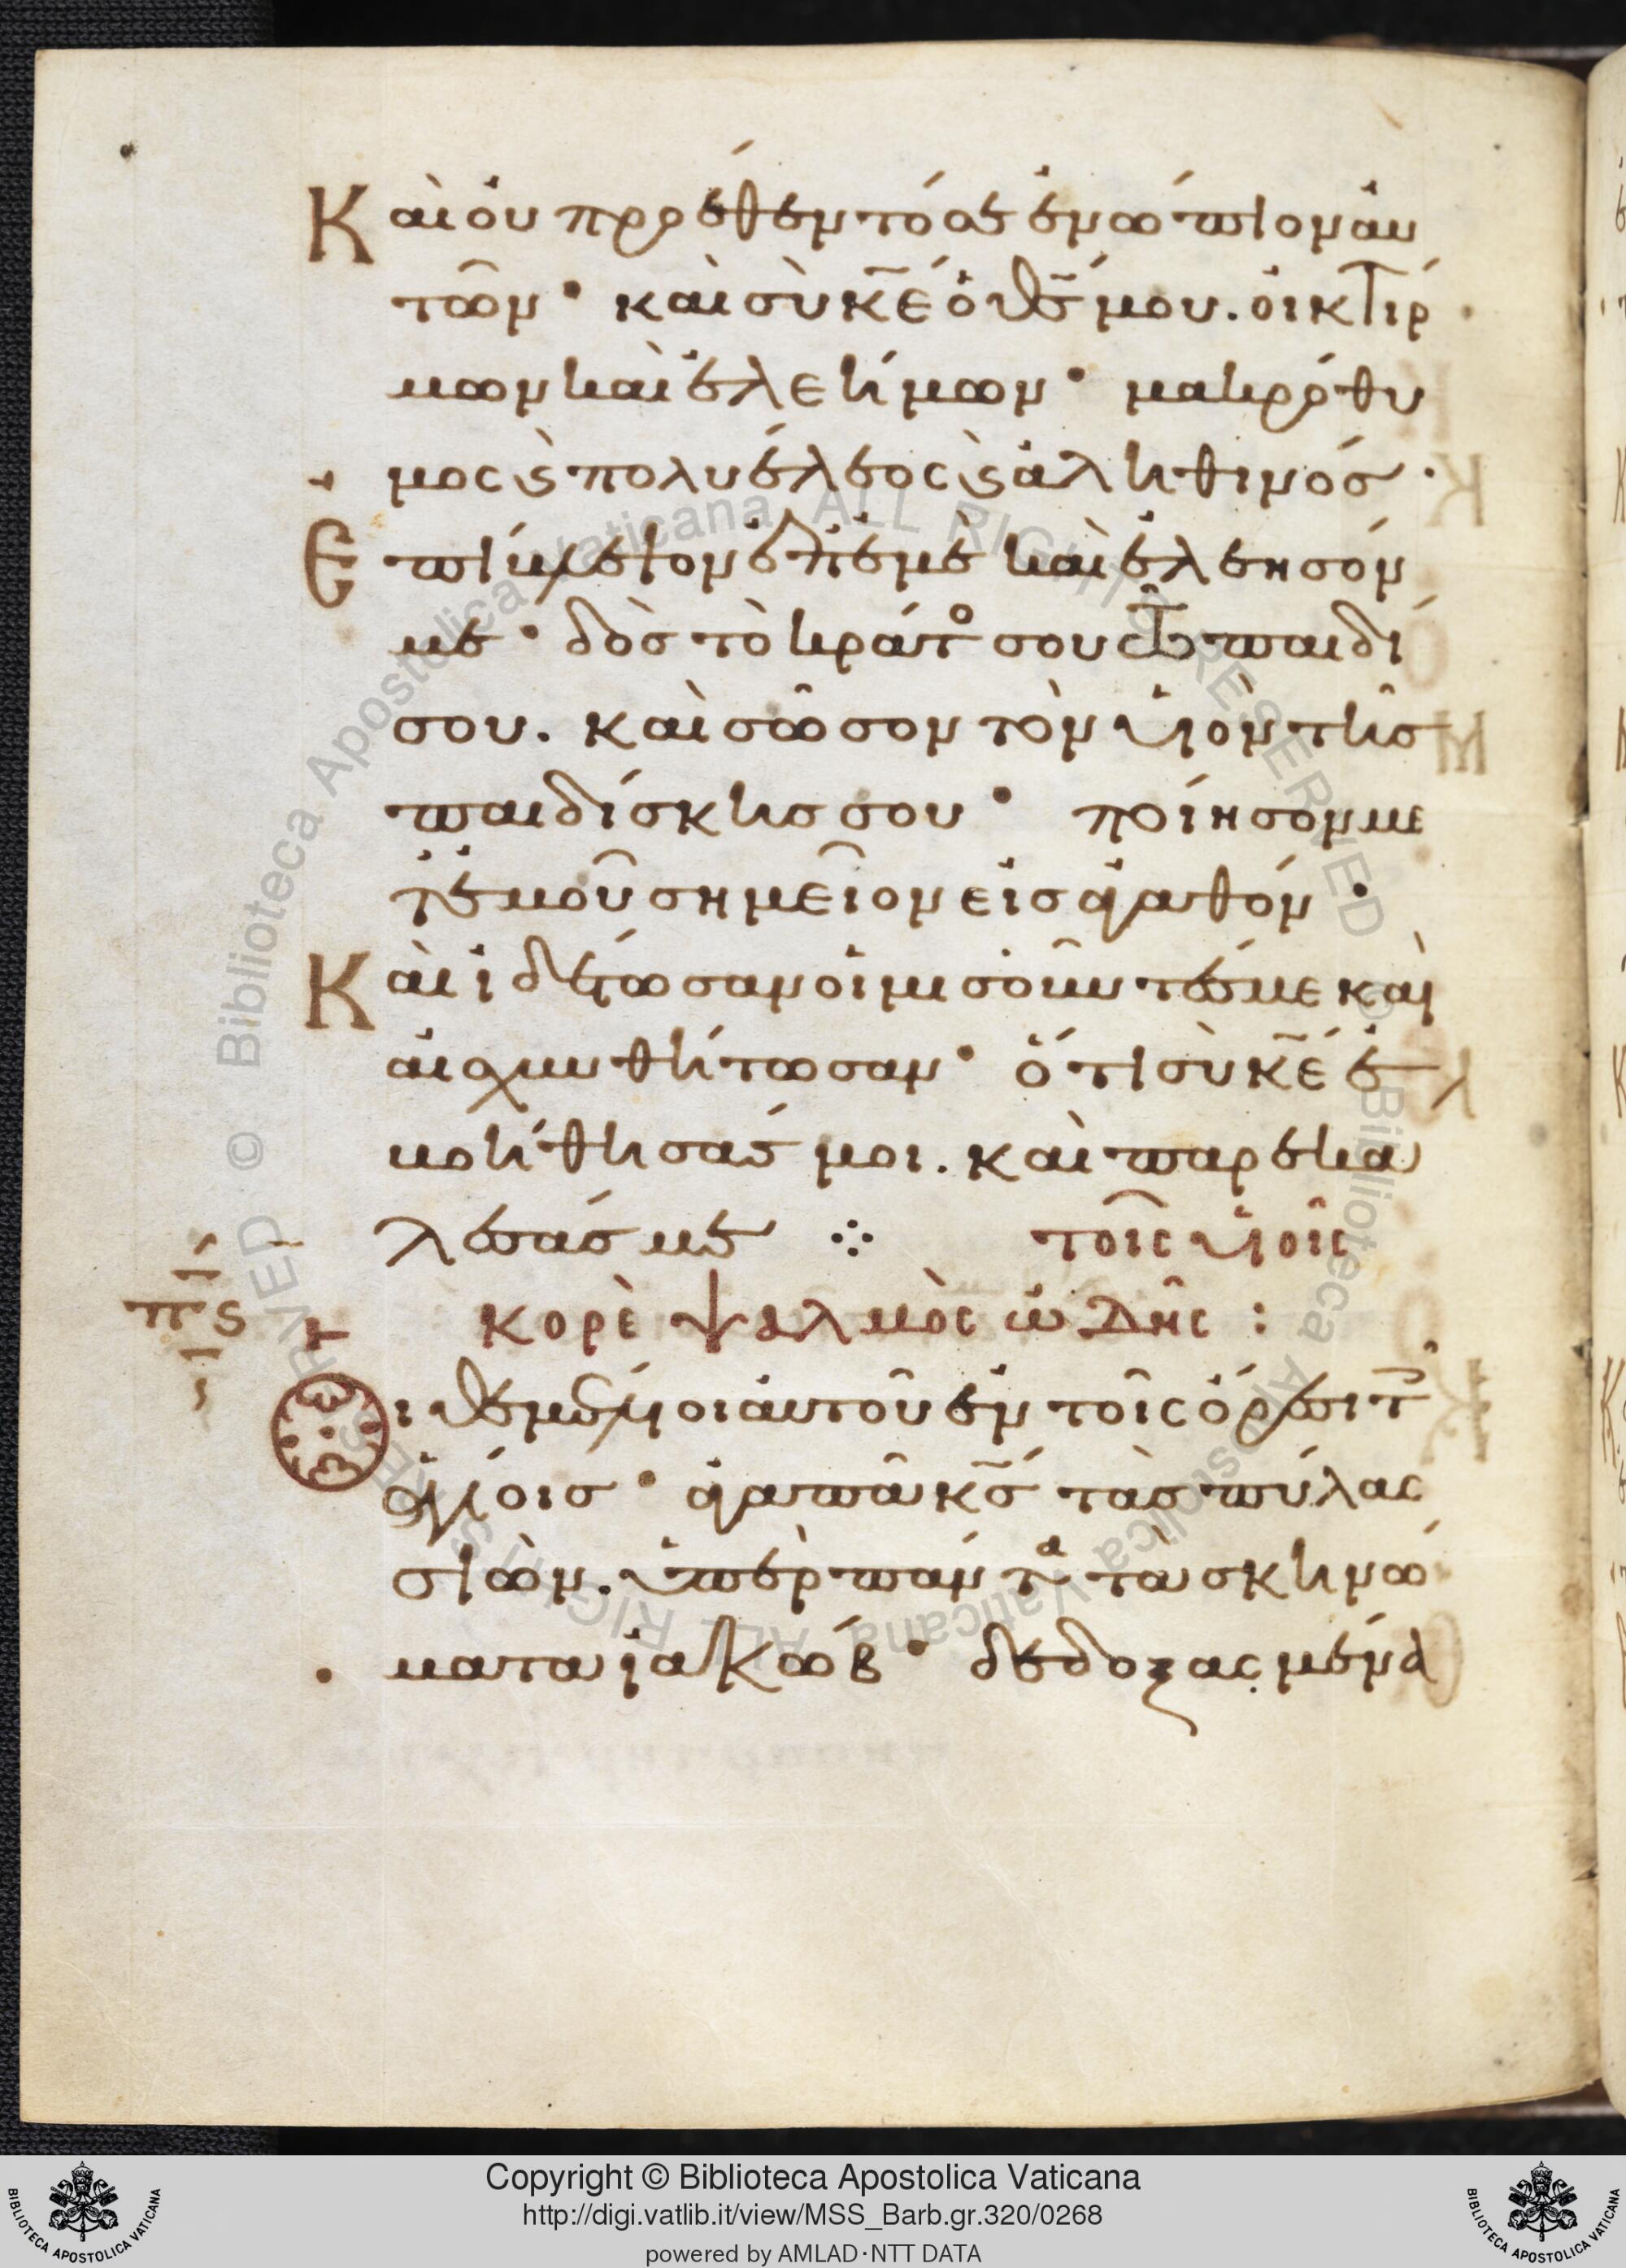 Καὶ οὐ προέθεντό σε ἐνώπιον αὐ
τῶν· καὶ σὺ κ̅ε̅ ὁ θ̅ς̅ μου. οἰκτίρ
μων καὶ ἐλεήμων· μακρόθυ
μος ϗ πολυέλεος ϗ ἀληθινός·
Ἐπίβλεψον ἐπ' ἐμὲ καὶ ἐλεησόν
με· δὸς τὸ κράτος σου τῶ παιδί
σου. καὶ σῶσον τὸν υἱὸν τῆς
παιδίσκης σου· ποίησον με
τ' ἐμοῦ σημεῖον εἰς ἀγαθόν·
Καὶ ἰδέτωσαν οἱ μισοῦντές με καὶ
αἰσχυνθήτωσαν· ὅτι σὺ κ̅ε̅ ἐ
βοήθησάς μοι. καὶ παρεκά
λεσάς με ⁘ τοῖς υἱοῖς
π̅ϛ̅ κορὲ ψαλμὸς ὠδῆς :
Οἱ θεμέλιοι αὐτοῦ ἐν τοῖς ὄρεσι τοῖς
ἁγίοις· ἀγαπᾶ κ̅ς̅ τὰς πύλας
σιών. ὑπὲρ πάντα τὰ σκηνώ
ματα ἰακώβ· δεδοξασμένα
Copyright © Biblioteca Apostolica Vaticana
http://digi.vatlib.it/view/MSS_Barb.gr.320/0268
powered by AMLAD·NTT DATA
BIBLIOTECA APOSTOLICA VATICANA
BIBLIOTECA APOSTOLICA VATICANA